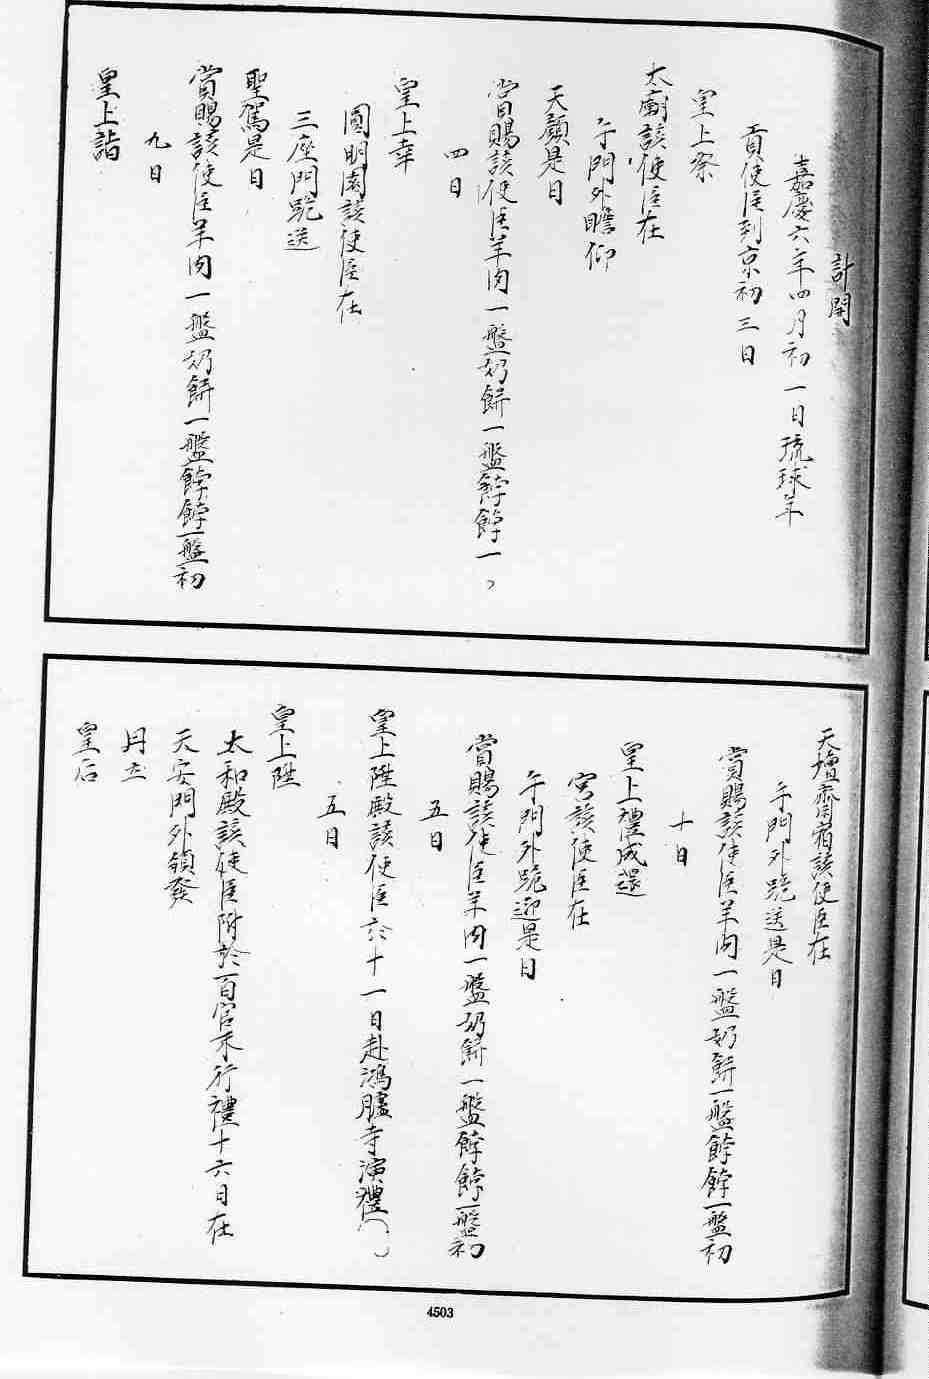 計開
嘉慶六年四月初一日琉球年
貢使臣到京初三日
皇上祭
太廟該使臣在
午門外瞻仰
天顏是日
賞賜該使臣羊肉一盤奶餅一盤餑餑一
四日
皇上幸
圓明園該使臣在
三座門跪送
聖駕是日
賞賜該使臣羊肉一盤奶餅一盤餑餑一盤初
九日
皇上詣
天壇齋宿該使臣在
午門外跪送是日
賞賜該使臣羊肉一盤奶餅一盤餑餑一盤初
十日
皇上禮成還
宮該使臣在
午門外跪迎是日
賞賜該使臣羊肉一盤奶餅一盤餑餑一盤初
五日
皇上陞殿該使臣於十一日赴鴻臚寺演禮
五日
皇上陞
太和殿該使臣附於百官末行禮十六日在
天安門外領發
冊立
皇后
4503